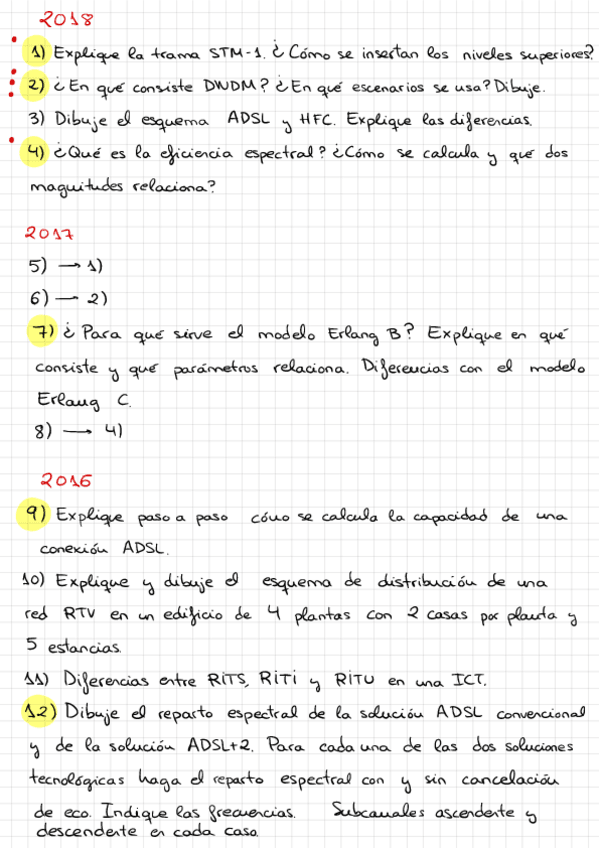 2018
1) Explique la trama STM-1. ¿Cómo se insertan los niveles superiores?
2) ¿En qué consiste DWDM? ¿En qué escenarios se usa? Dibuje.
3) Dibuje el esquema ADSL y HFC. Explique las diferencias.
4) ¿Qué es la eficiencia espectral? ¿Cómo se calcula y qué dos
magnitudes relaciona?
2017
5) → 1)
6) → 2)
7) ¿Para qué sirve el modelo Erlang B? Explique en qué
consiste y qué parámetros relaciona. Diferencias con el modelo
Erlang C.
8) → 4)
2016
9) Explique paso a paso cómo se calcula la capacidad de una
conexión ADSL.
10) Explique y dibuje el esquema de distribución de una
red RTV en un edificio de 4 plantas con 2 casas por planta y
5 estancias.
11) Diferencias entre RITS, RITI y RITU en una ICT.
12) Dibuje el reparto espectral de la solución ADSL convencional
y de la solución ADSL+2. Para cada una de las dos soluciones
tecnológicas haga el reparto espectral con y sin cancelación
de eco. Indique las frecuencias. Subcanales ascendente y
descendente en cada caso.